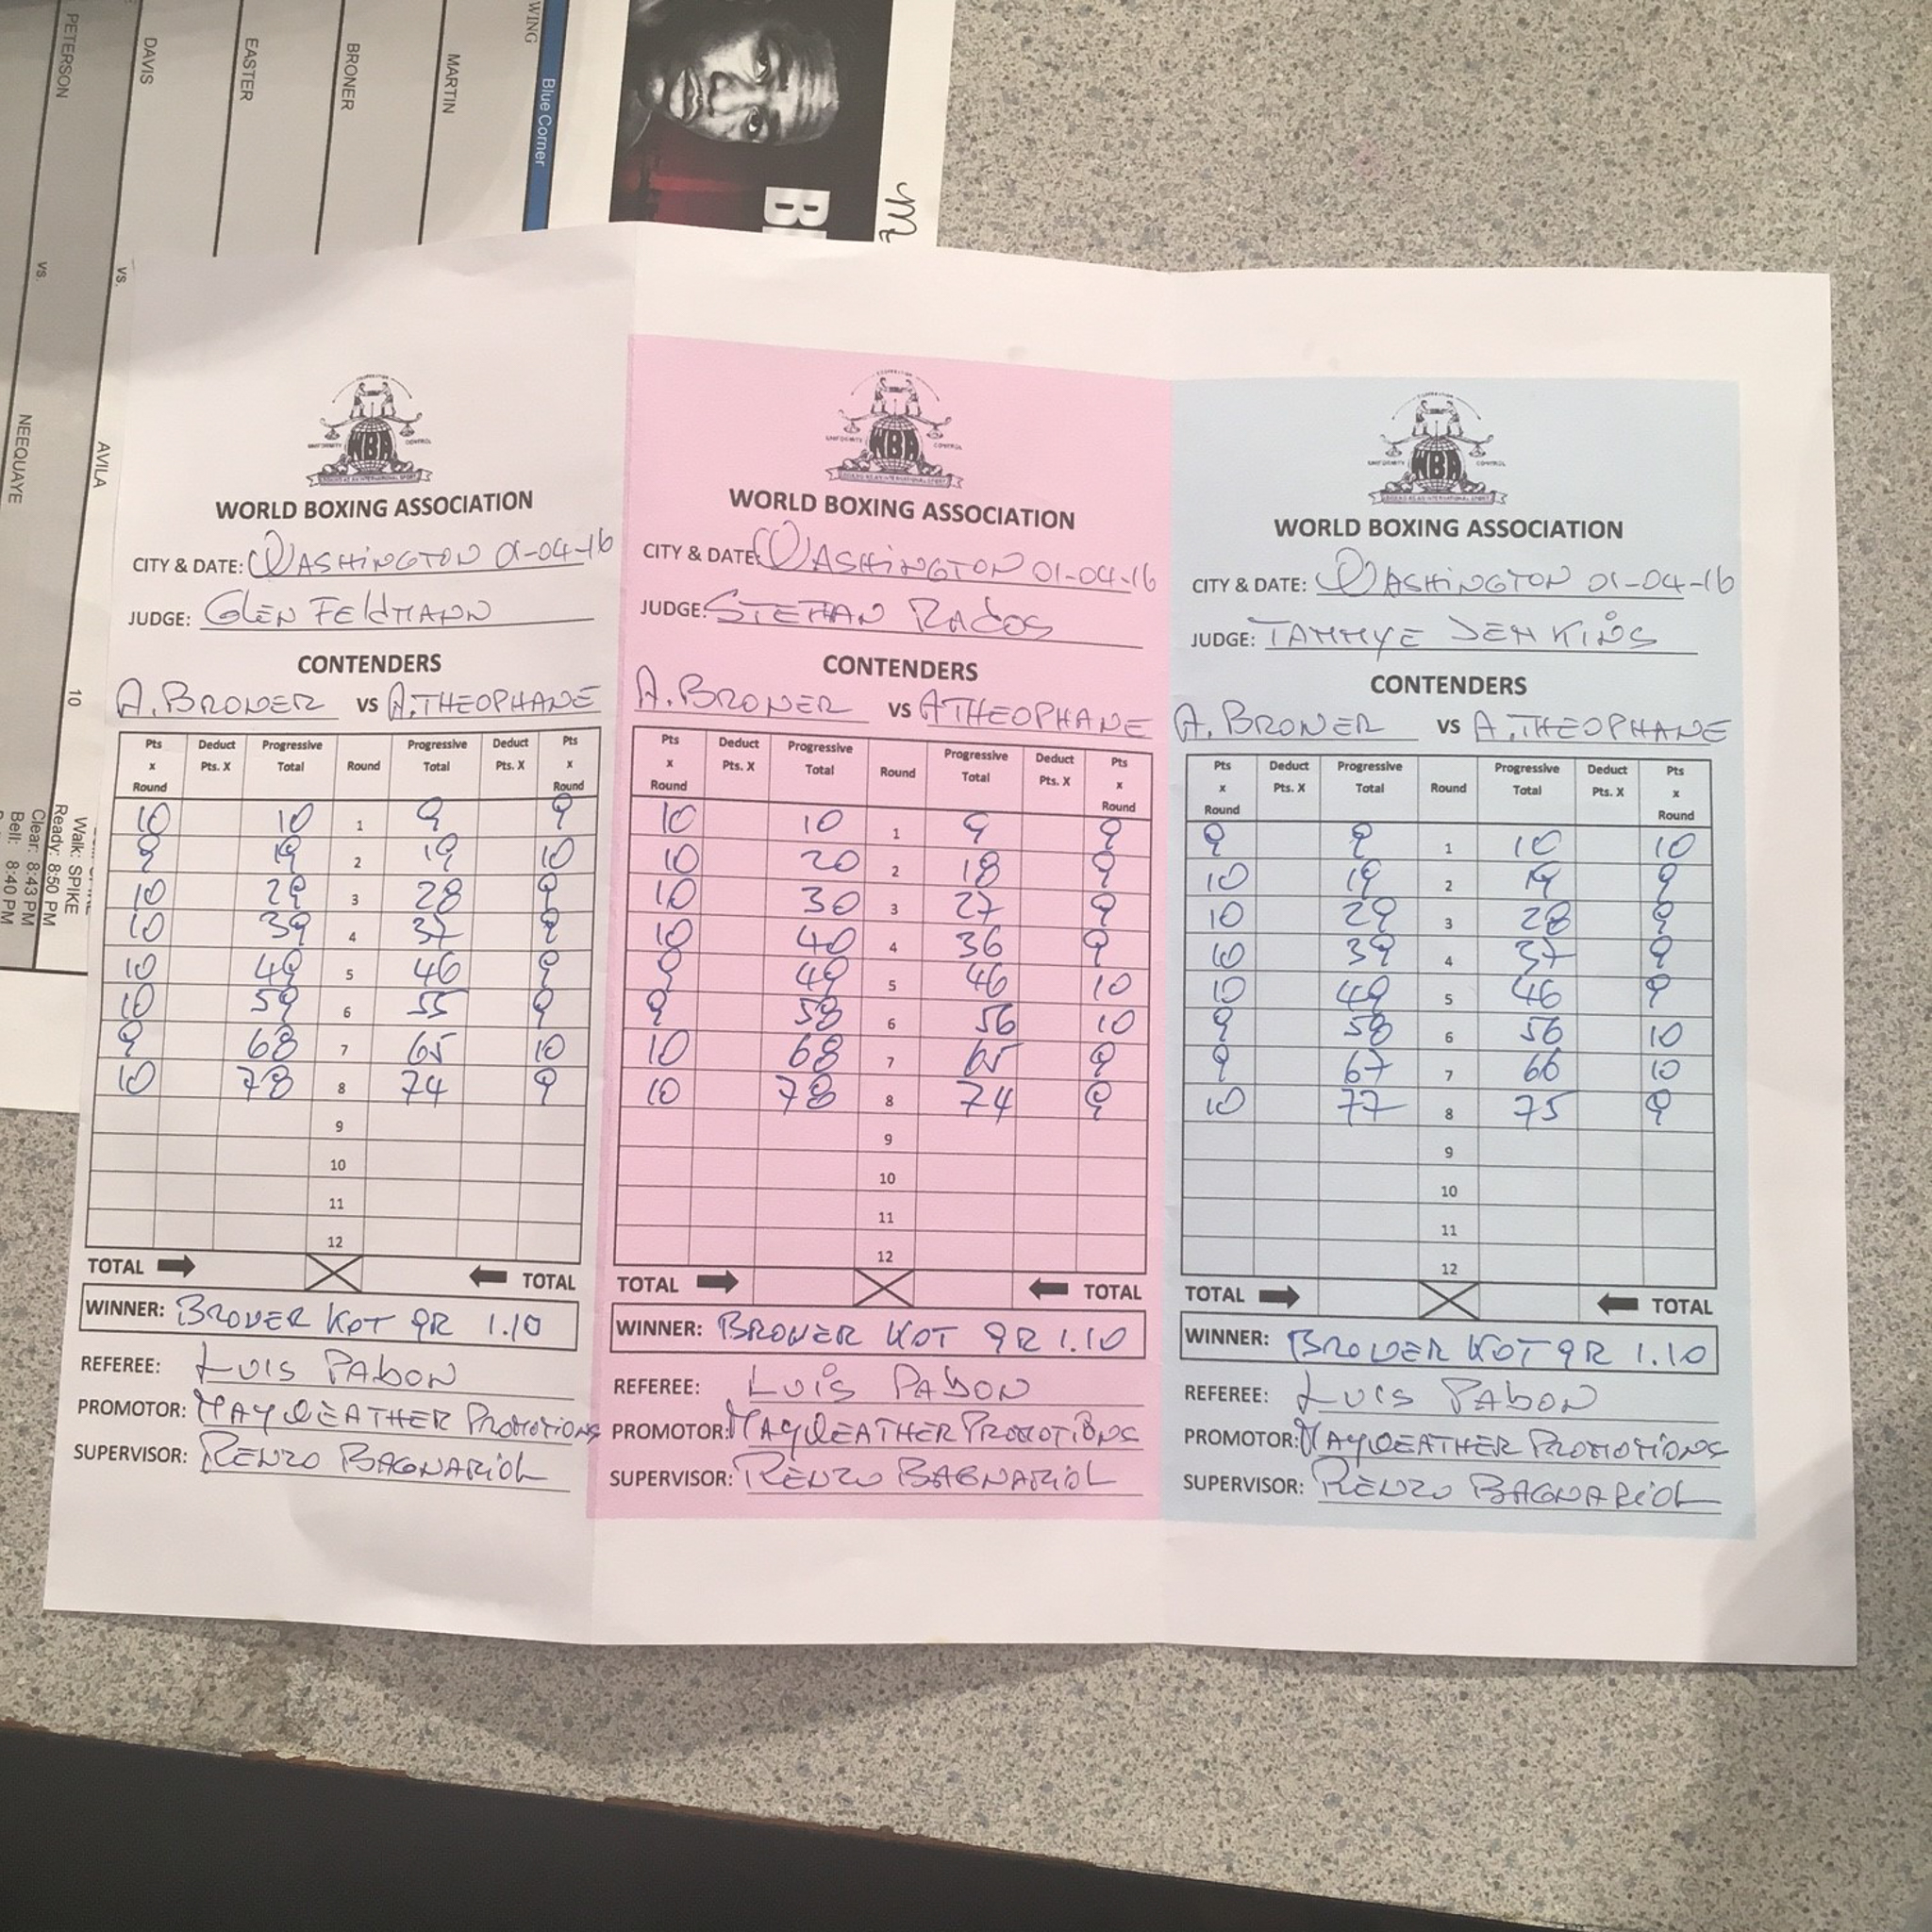 PETERSON
DAVIS
EASTER
BRONER
MARTIN
WING
Blue Corner
vs.
vs.
NEEQUAYE
AVILA
10
Walk: SPIKE
Ready: 8:50 PM
Clear: 8:43 PM
Bell: 8:40 PM
WBA
WORLD BOXING ASSOCIATION
CITY & DATE: WASHINGTON 01-04-16
JUDGE: GLEN FELdMANN
CONTENDERS
A. BRONER VS A. THEOPHANE
Pts x Round Deduct Pts. X Progressive Total Round Progressive Total Deduct Pts. X Pts x Round
10 10 1 9 9
9 19 2 19 10
10 29 3 28 9
10 39 4 37 9
10 49 5 46 9
10 59 6 55 9
9 68 7 65 10
10 78 8 74 9
9
10
11
12
TOTAL TOTAL
WINNER: BRONER KOT 9R 1.10
REFEREE: LUIS PABON
PROMOTOR: MAYWEATHER PROMOTIONS
SUPERVISOR: RENZO BAGNARIOL
WBA
WORLD BOXING ASSOCIATION
CITY & DATE: WASHINGTON 01-04-16
JUDGE: STEPHAN RADOS
CONTENDERS
A. BRONER VS A THEOPHANE
Pts x Round Deduct Pts. X Progressive Total Round Progressive Total Deduct Pts. X Pts x Round
10 10 1 9 9
10 20 2 18 9
10 30 3 27 9
10 40 4 36 9
9 49 5 46 10
9 58 6 56 10
10 68 7 65 9
10 78 8 74 9
9
10
11
12
TOTAL TOTAL
WINNER: BRONER KOT 9R 1.10
REFEREE: LUIS PABON
PROMOTOR: MAYWEATHER PROMOTIONS
SUPERVISOR: RENZO BAGNARIOL
WBA
WORLD BOXING ASSOCIATION
CITY & DATE: WASHINGTON 01-04-16
JUDGE: TAMMYE JENKINS
CONTENDERS
A. BRONER VS A. THEOPHANE
Pts x Round Deduct Pts. X Progressive Total Round Progressive Total Deduct Pts. X Pts x Round
9 9 1 10 10
10 19 2 19 9
10 29 3 28 9
10 39 4 37 9
10 49 5 46 9
9 58 6 56 10
9 67 7 66 10
10 77 8 75 9
9
10
11
12
TOTAL TOTAL
WINNER: BRONER KOT 9R 1.10
REFEREE: LUIS PABON
PROMOTOR: MAYWEATHER PROMOTIONS
SUPERVISOR: RENZO BAGNARIOL